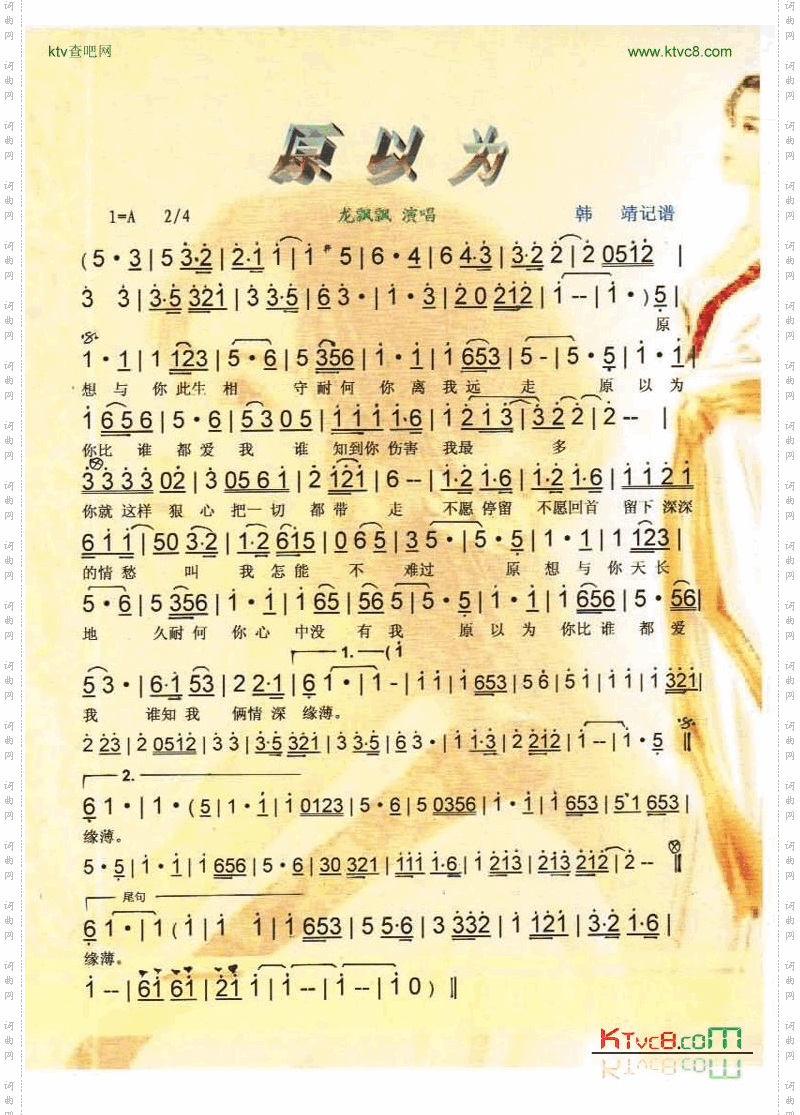 ktv查吧网 www.ktvc8.com
原以为
1=A 2/4 龙飘飘 演唱 韩 靖记谱
(5·3|5 3·2|2·1 1|1 5|6·4|6 4·3|3·2 2|2 0512|
3 3|3·5 321|3 3·5|6 3·|1·3|2 0 212|1 --|1·)5|
原
1·1|1 123|5·6|5 356|1·1|1 653|5-|5·5|1·1|
想 与 你 此 生 相 守 耐 何 你 离 我 远 走 原 以 为
1 6 5 6|5·6|5 3 0 5|1 1 1 1·6|1 2 1 3|3 2 2|2 --|
你比 谁 都 爱 我 谁 知到你 伤害 我最 多
3 3 3 3 02|3 05 6 1|2 121|6 --|1·2 1·6|1·2 1·6|1 1 2 1
你就 这样 狠 心 把一 切 都 带 走 不愿 停留 不愿回首 留下 深深
6 1 1|50 3·2|1·2 615|0 6 5|3 5·|5·5|1·1|1 123|
的情 愁 叫 我 怎能 不 难过 原 想 与 你 天 长
5·6|5 356|1·1|1 65|56 5|5·5|1·1|1 656|5·56|
地 久 耐 何 你 心 中没 有 我 原 以 为 你比 谁 都 爱
1.(1
5 3·|6·1 53|2 2 2·1|6 1·|1-|1 1|1 653|5 6|5 1|1 1|1 321|
我 谁知 我 俩情 深 缘薄。
2 23|2 0512|3 3|3·5 321|3 3·5|6 3·|1 1·3|2 212|1 --|1·5
2.
6 1·|1·(5|1·1|1 0123|5·6|5 0356|1·1|1 653|5 1 653|
缘薄。
5·5|1·1|1 656|5·6|30 321|111 1·6|1 213|213 212|2 --
尾句
6 1·|1(1|1 1|1 653|5 5·6|3 332|1 121|3·2 1·6|
缘薄。
1 --|61 61|21 1|1 --|1 --|1 0)
KTvc8.com